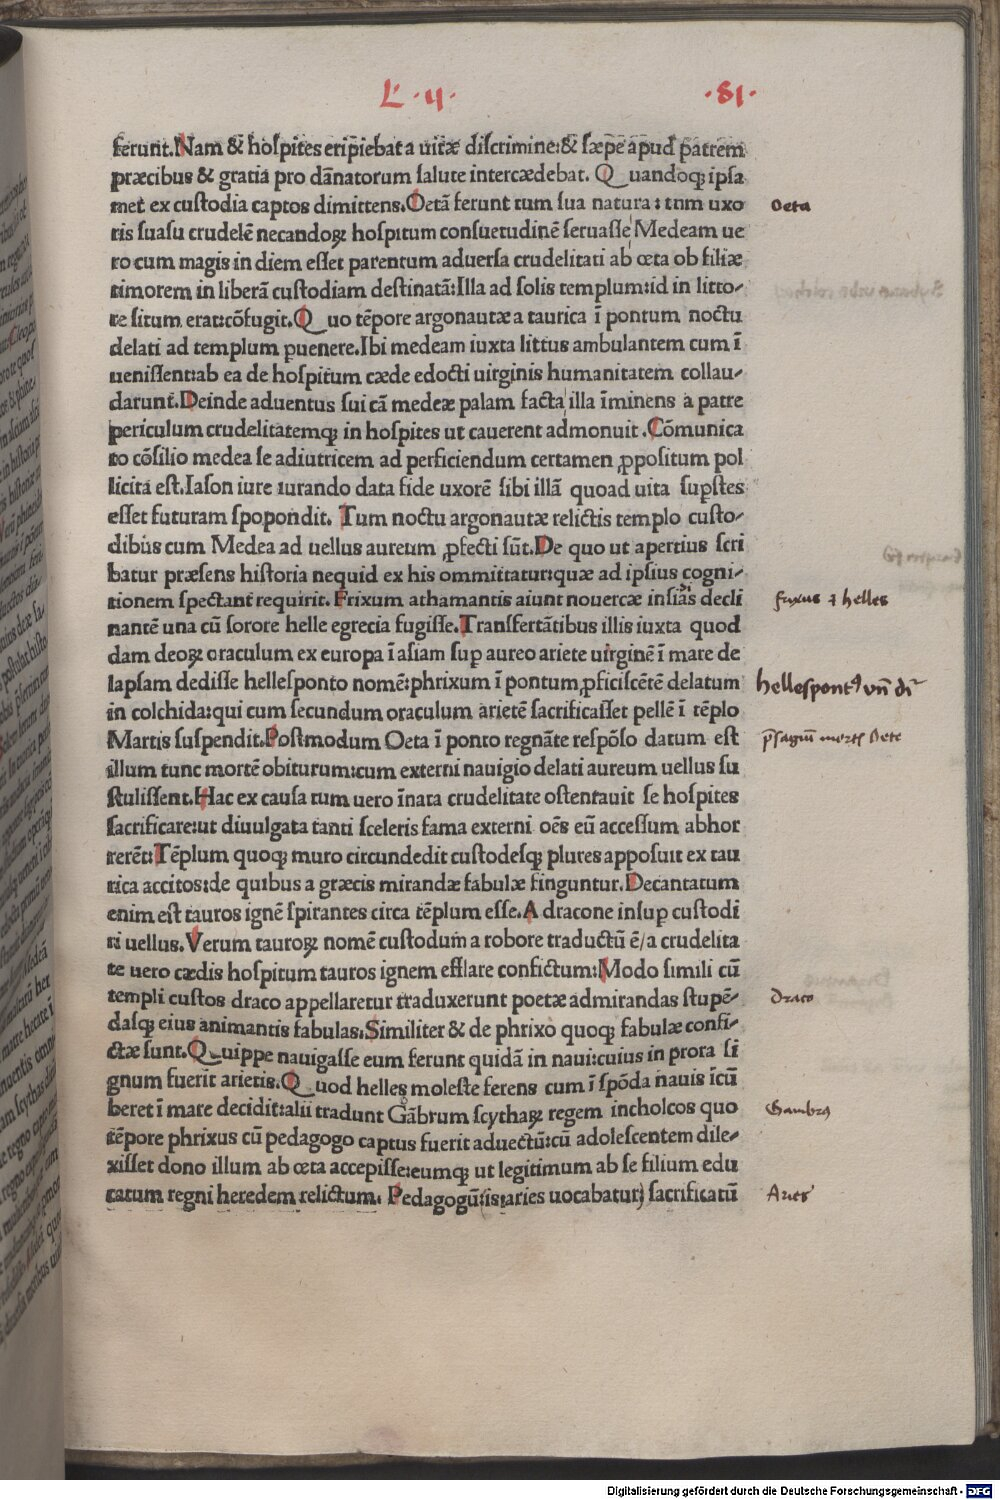 L· ·4· ·81·
ferunt. Nam & hospites eripiebat a uitæ discrimine: & sæpe apud patrem
præcibus & gratia pro dānatorum salute intercædebat. Quandoqꝫ ipsa
met ex custodia captos dimittens. Oetā ferunt tum sua natura: tum uxo
ris suasu crudelē necandoꝝ hospitum consuetudinē seruasse Medeam ue
ro cum magis in diem esset parentum aduersa crudelitati ab œta ob filiæ
timorem in liberā custodiam destinatā: Illa ad solis templum: id in litto-
re situm erat: cōfugit. Quo tēpore argonautæ a taurica ī pontum noctu
delati ad templum puenere. Ibi medeam iuxta littus ambulantem cum ī
uenissent: ab ea de hospitum cæde edocti uirginis humanitatem collau-
darunt. Deinde aduentus sui cā medeæ palam facta illa īminens a patre
periculum crudelitatemqꝫ in hospites ut cauerent admonuit. Cōmunica
to cōsilio medea se adiutricem ad perficiendum certamen ꝓpositum pol
licita est. Iason iure iurando data fide uxorē sibi illā quoad uita supstes
esset futuram spopondit. Tum noctu argonautæ relictis templo custo-
dibus cum Medea ad uellus aureum ꝓfecti sūt. De quo ut apertius scri
batur præsens historia nequid ex his ommittatur: quæ ad ipsius cogni-
tionem spectant requirit. Frixum athamantis aiunt nouercæ insias decli
nantē una cū sorore helle egrecia fugisse. Transfertātibus illis iuxta quod
dam deoꝝ oraculum ex europa ī asiam sup aureo ariete uirginē ī mare de
lapsam dedisse hellesponto nomē: phrixum ī pontum ꝓficiscētē delatum
in colchida: qui cum secundum oraculum arietē sacrificasset pellē ī tēplo
Martis suspendit. Postmodum Oeta ī ponto regnāte respōso datum est
illum tunc mortē obiturum: cum externi nauigio delati aureum uellus su
stulissent. Hac ex causa tum uero īnata crudelitate ostentauit se hospites
sacrificare: ut diuulgata tanti sceleris fama externi oēs eū accessum abhor
rerēt: Tēplum quoqꝫ muro circundedit custodesqꝫ plures apposuit ex tau
rica accitos: de quibus a græcis mirandæ fabulæ finguntur. Decantatum
enim est tauros ignē spirantes circa tēplum esse. A dracone insup custodi
ri uellus. Verum tauroꝝ nomē custodum a robore traductū ē/ a crudelita
te uero cædis hospitum tauros ignem efflare confictum: Modo simili cū
templi custos draco appellaretur traduxerunt poetæ admirandas stupē-
dasqꝫ eius animantis fabulas. Similiter & de phrixo quoqꝫ fabulæ confi-
ctæ sunt. Quippe nauigasse eum ferunt quidā in naui: cuius in prora si
gnum fuerit arietis. Quod helles moleste ferens cum ī spōda nauis īcū
beret ī mare decidit: alii tradunt Gābrum scythaꝝ regem incholcos quo
tēpore phrixus cū pedagogo captus fuerit aduectū: cū adolescentem dile-
xisset dono illum ab œta accepisse: eumqꝫ ut legitimum ab se filium edu
catum regni heredem relictum. Pedagogū (is aries uocabatur) sacrificatū
Oeta
frixus ⁊ helles
hellespontꝰ vn̄ dr̄
p̄sagiū mortis Oete
Draco
Gambrꝰ
Aries
Digitalisierung gefördert durch die Deutsche Forschungsgemeinschaft - DFG